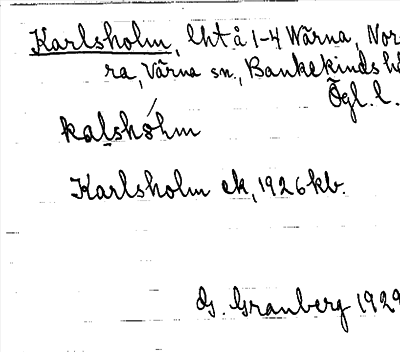 Karlsholm, lht å 1-4 Wärna, Nor-
ra, Värna sn., Bankekinds h
Ögl. l.
kalshólm
Karlsholm ek, 1926 kb.
G. Granberg 1929